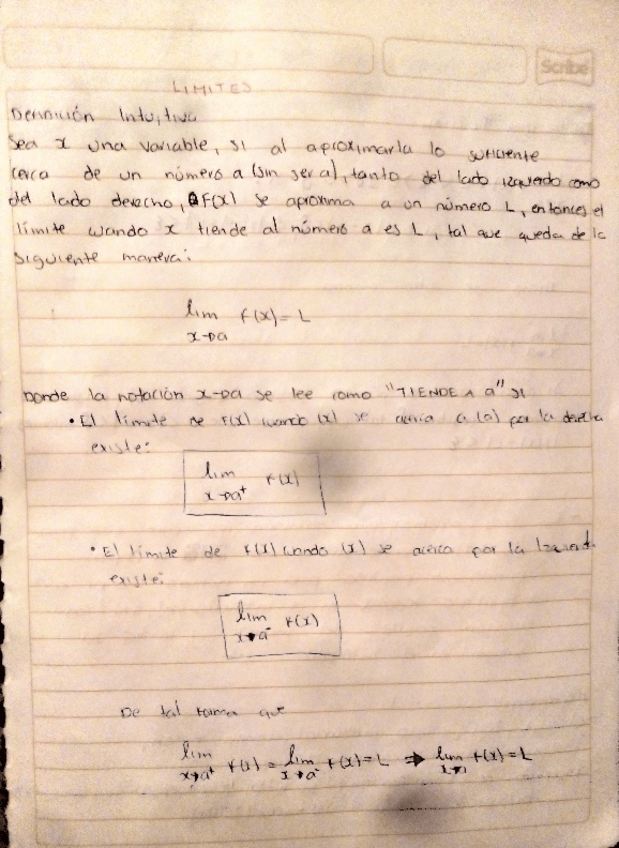 Scribe
LIMITES
Definición Intuitiva
Sea x una variable, si al aproximarla lo suficiente
cerca de un número a (sin ser a), tanto del lado izquierdo como
del lado derecho, F(x) se aproxima a un número L, entonces el
límite cuando x tiende al número a es L, tal que queda de la
siguiente manera:
lim f(x) = L
x→a
Donde la notación x→a se lee como "TIENDE A a" si
• El límite de F(x) cuando (x) se acerca a (a) por la derecha
existe:
lim f(x)
x→a⁺
• El límite de f(x) cuando (x) se acerca por la Izquierda
existe:
lim f(x)
x→a⁻
De tal forma que
lim f(x) = lim f(x) = L ⇒ lim f(x) = L
x→a⁺ x→a⁻ x→a